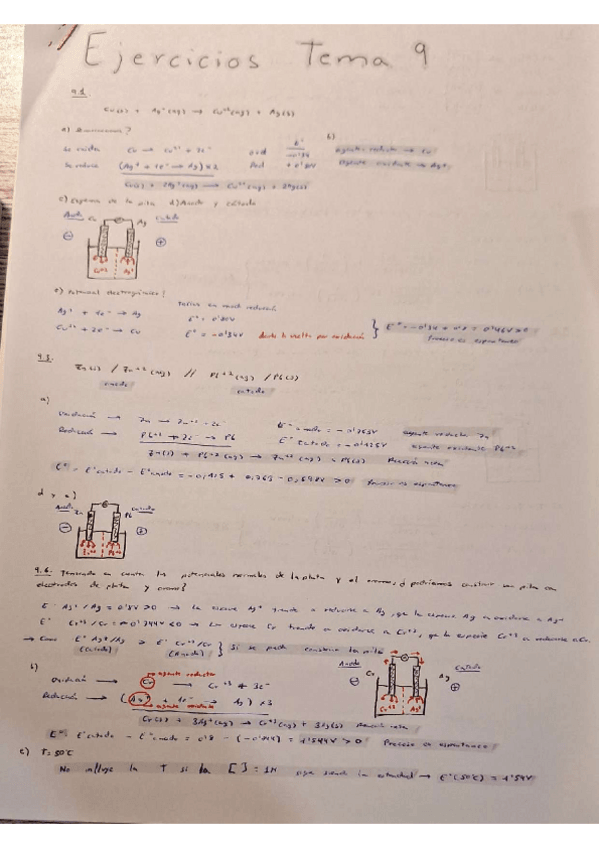 Ejercicios Tema 9
9.1.
Cu(s) + Ag⁺(aq) → Cu⁺²(aq) + Ag(s)
a) ?
b)
Se oxida Cu → Cu⁺² + 2e⁻ oxid -0'34 agente reductor → Cu
Se reduce (Ag⁺ + 1e⁻ → Ag) x 2 Red +0'80V agente oxidante → Ag⁺
Cu(s) + 2Ag⁺(aq) → Cu⁺²(aq) + 2Ag(s)
c) Esquema de la pila d) Ánodo y cátodo
Ánodo Cu Ag Cátodo
⊖ ⊕
Cu⁺² Ag⁺
e) Potencial electroquímico?
Ag⁺ + 1e⁻ → Ag E° = 0'80V
Cu⁺² + 2e⁻ → Cu E° = -0'34V } E° = -0'34 + 0'8 = 0'46V > 0
Proceso es espontáneo
9.5.
Zn(s) / Zn⁺²(aq) // Pb⁺²(aq) / Pb(s)
ánodo cátodo
a)
Oxidación → Zn → Zn⁺² + 2e⁻ E° ánodo = -0'763V agente reductor Zn
Reducción → Pb⁺² + 2e⁻ → Pb E° cátodo = -0'125V agente oxidante Pb⁺²
Zn(s) + Pb⁺²(aq) → Zn⁺²(aq) + Pb(s) Reacción
E° = E°cátodo - E°ánodo = + 0,763 > 0 Proceso es espontáneo
Ánodo Zn Pb Cátodo
⊖ ⊕
Zn⁺² Pb⁺²
9.6. Teniendo en cuenta los potenciales normales de la plata y el cromo, ¿podríamos construir una pila con
electrodos de plata y cromo?
E° Ag⁺/Ag = 0'8V > 0 → La especie Ag⁺ tiende a reducirse a Ag, que la especie Ag a oxidarse a Ag⁺
E° Cr⁺³/Cr = -0'744V < 0 → La especie Cr tiende a oxidarse a Cr⁺³, que la especie Cr⁺³ a reducirse a Cr.
→ Como E° Ag⁺/Ag > E° Cr⁺³/Cr } Si se puede construir la pila
(Cátodo) (Ánodo)
Ánodo Cr Ag Cátodo
⊖ ⊕
Cr⁺³ Ag⁺
b) agente reductor
Oxidación → Cr → Cr⁺³ + 3e⁻
Reducción → (Ag⁺ + 1e⁻ → Ag) x 3
agente oxidante
Cr(s) + 3Ag⁺(aq) → Cr⁺³(aq) + 3Ag(s) Reacción
E° = E°cátodo - E°ánodo = 0'8 - (-0'744) = 1'544V > 0 Proceso es espontáneo
c) T = 50°C
No influye la T si la [ ] = 1M → E°(50°C) = 1'54V